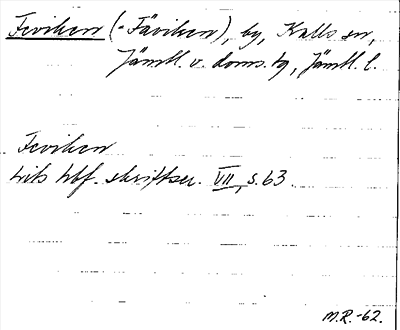 Feviken (= Fäviken), by, Kalls sn,
Jämtl. v. doms. tg, Jämtl. l.
Feviken
hbf. skriftser. VII, s. 63.
M.R.-62.